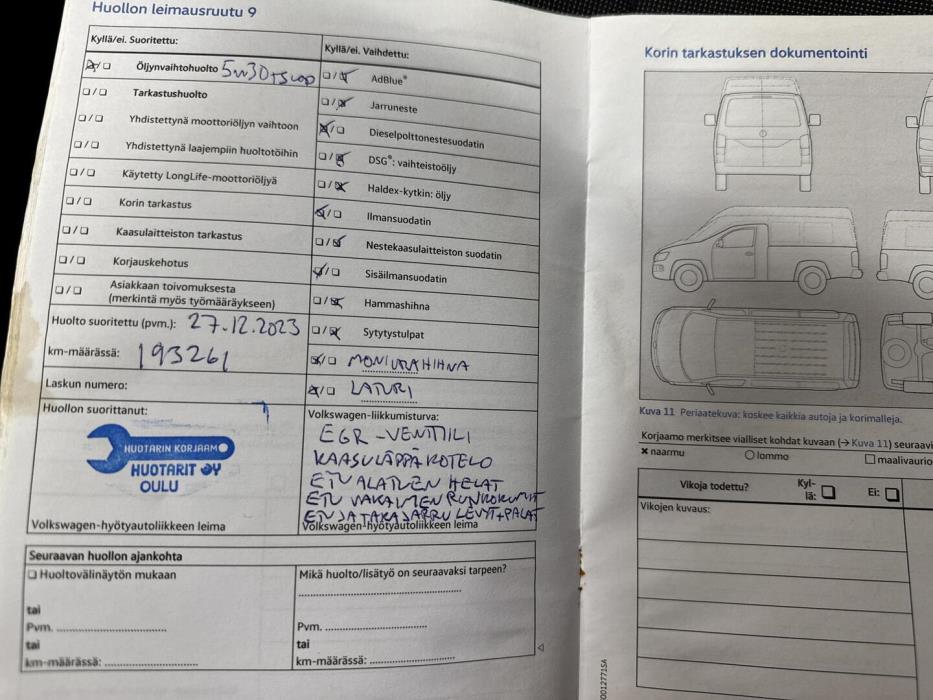 Huollon leimausruutu 9
Kyllä/ei. Suoritettu:
Öljynvaihtohuolto 5w30+suod
Tarkastushuolto
Yhdistettynä moottoriöljyn vaihtoon
Yhdistettynä laajempiin huoltotöihin
Käytetty LongLife-moottoriöljyä
Korin tarkastus
Kaasulaitteiston tarkastus
Korjauskehotus
Asiakkaan toivomuksesta
(merkintä myös työmääräykseen)
Huolto suoritettu (pvm.): 27.12.2023
km-määrässä: 193261
Laskun numero:
Huollon suorittanut:
HUOTARIN KORJAAMO
HUOTARIT OY
OULU
Volkswagen-hyötyautoliikkeen leima
Kyllä/ei. Vaihdettu:
AdBlue®
Jarruneste
Dieselpolttonestesuodatin
DSG®: vaihteistoöljy
Haldex-kytkin: öljy
Ilmansuodatin
Nestekaasulaitteiston suodatin
Sisäilmansuodatin
Hammashihna
Sytytystulpat
MONIURAHIHNA
LATURI
Volkswagen-liikkumisturva:
EGR-VENTTIILI
KAASULÄPPÄKOTELO
ETU ALATUEN HELAT
ETU VAKAIMEN RUNKOKUMIT
ETU JA TAKAJARRU LEVYT+PALAT
Volkswagen-hyötyautoliikkeen leima
Seuraavan huollon ajankohta
Huoltovälinäytön mukaan
tai
Pvm.
tai
km-määrässä:
Mikä huolto/lisätyö on seuraavaksi tarpeen?
Pvm.
tai
km-määrässä:
Korin tarkastuksen dokumentointi
Kuva 11 Periaatekuva: koskee kaikkia autoja ja korimalleja.
Korjaamo merkitsee vialliset kohdat kuvaan (→ Kuva 11) seuraavi
× naarmu lommo maalivaurio
Vikoja todettu? Kyl-
lä: Ei:
Vikojen kuvaus: